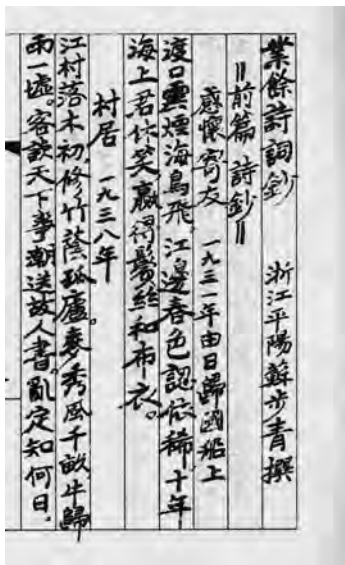 業餘詩詞鈔 浙江平陽蘇步青撰
=前篇 詩鈔=
感懷寄友 一九三一年由日歸國船上
渡口雲煙海鳥飛,江邊春色認依稀。十年
海上君休笑,贏得鬢絲和布衣。
村居 一九三八年
江村落木初,修竹蔭孤廬。麥秀風千畝,牛歸
雨一墟。客談天下事,潮送故人書。亂定知何日,